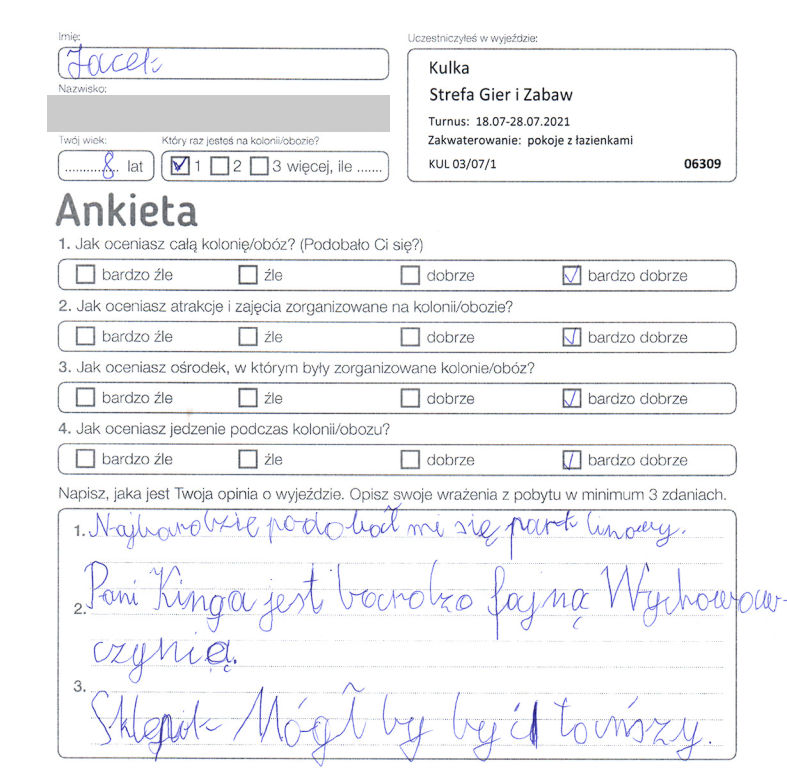 Imię:
Jacek
Nazwisko:
Twój wiek:
8 lat
Który raz jesteś na kolonii/obozie?
1 2 3 więcej, ile .......
Uczestniczyłeś w wyjeździe:
Kulka
Strefa Gier i Zabaw
Turnus: 18.07-28.07.2021
Zakwaterowanie: pokoje z łazienkami
KUL 03/07/1 06309
Ankieta
1. Jak oceniasz całą kolonię/obóz? (Podobało Ci się?)
bardzo źle źle dobrze bardzo dobrze
2. Jak oceniasz atrakcje i zajęcia zorganizowane na kolonii/obozie?
bardzo źle źle dobrze bardzo dobrze
3. Jak oceniasz ośrodek, w którym były zorganizowane kolonie/obóz?
bardzo źle źle dobrze bardzo dobrze
4. Jak oceniasz jedzenie podczas kolonii/obozu?
bardzo źle źle dobrze bardzo dobrze
Napisz, jaka jest Twoja opinia o wyjeździe. Opisz swoje wrażenia z pobytu w minimum 3 zdaniach.
1. Najbardzie podobał mi się park linowy.
2. Pani Kinga jest bardzo fajną Wychowaw-
czynią.
3. Sklepik Mógł by być tańszy.